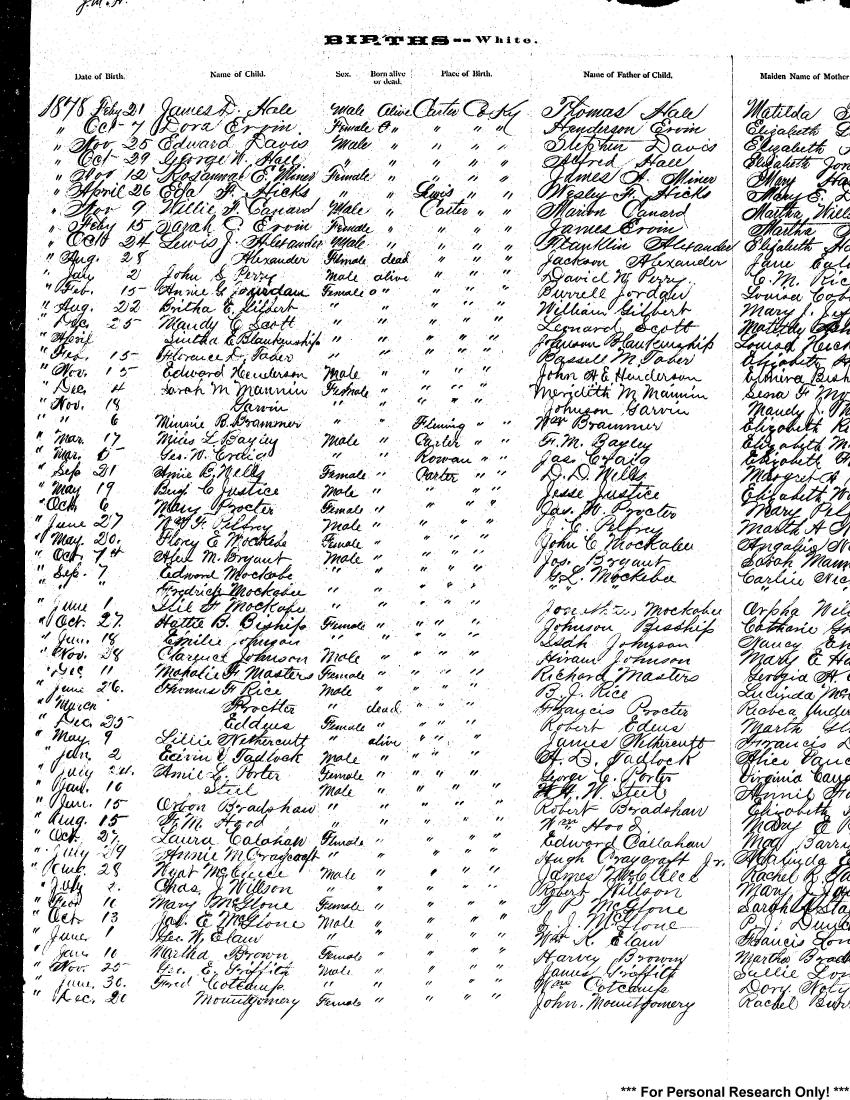 J.M.H.
BIRTHS--White.
Date of Birth. Name of Child. Sex. Born alive or dead. Place of Birth. Name of Father of Child. Maiden Name of Mother
1878 Feby 21 James D. Hale Male Alive Carter Co Ky Thomas Hale Matilda
" Oct 7 Dora Ervin Female " " " Henderson Ervin Elizabeth
" Nov 25 Edward Davis Male " " " " Stephen Davis Elizabeth
" Oct 29 George W. Hall " " " " " Alfred Hall Elizabeth
" Nov 12 Rosannah E Miner Female " " " " James A. Miner Mary
" April 26 Eda F. Hicks " " Lewis " " Wesley F. Hicks Mary E.
" Nov 9 Willie F. Canard Male " Carter " " Marion Canard Martha
" Feby 15 Sarah C Ervin Female " " " " James Ervin Martha
" Oct 24 Lewis J. Alexander Male " " " " Franklin Alexander Elizabeth
" Aug. 28 Alexander Female dead " " " Jackson Alexander Jane
" Jany 2 John S. Perry Male alive " " " David W. Perry C. M.
" Feb. 15 Annie G. Jourdan Female " " " Burrell Jordan Louisa
" Aug. 22 Britha E. Gilbert " " " " " William Gilbert Mary
" Dec. 25 Mandy C. Scott " " " " " Leonard Scott
" April Sintha E Blankenship " " " " " Johnson Blankenship
" Feb. 15 Florence L. Taber " " " " " Bassell M. Taber Elizabeth
" Nov. 15 Edward Henderson Male " " " " John H. E. Henderson
" Dec. 4 Sarah M Mannin Female " " " " Meridith M Mannin
" Nov. 18 Garvin " " " " " Johnson Garvin Mandy
" " 6 Minnie B. Brammer Fleming " " Wm Brammer Elizabeth
" Mar. 17 Miles L Bayley Male " Carter " " F. M. Bayley Elizabeth
" Mar. 5 Geo. W. Craig " " Rowan " " Jas. Craig Elizabeth
" Sep. 21 Amie B. Wells Female " Carter " " D. D. Wells Margret
" May 19 Benj. C Justice Male " " " " Jesse Justice Elizabeth
" Oct. 6 Mary Procter Female " " " " Jas. W. Procter Mary
" June 27 Wm F. Pelfry Male " " " " J. C. Pelfry Marth A
" May. 20. Florey E Mockabe Female " " " " John C Mockabee
" Oct. 14 Alex M. Bryant Male " " " " Jas. Bryant Sarah
" Sep. 7 Edward Mockabe " " " " " G. L. Mockabee
" " " Fredrick Mockabe " " " " "
" June 1 Mockabe " " " " " Mockabee Orpha
" Oct. 27. Hattie B. Biship Female " " " " Johnson Bisship Catharine
" Jan. 18 Emilie Johnson " " " " " Johnson Nancy
" Nov. 28 Clarence Johnson Male " " " " Hiram Johnson Mary E
" Dec 11 Mahalie F. Masters Female " " " " Richard Masters Georgia
" June 26. Thomas F Rice Male " " " " B. J. Rice Lucinda
" March Procter " dead " " " Francis Procter
" Dec. 25 Eddyes Female " " " " Robert Edens Marth
" May. 9 Lillie Nethercutt " alive " " " James Nethercutt Francis
" Jan. 2 Tadlock Male " " " " A. D. Tadlock Alice
" July Amie L. Porter Female " " " " George C. Porter Virginia
" Jan. 10 Steel Male " " " " W Steel Annie
" Jan. 15 Orbon Bradshaw " " " " " Robert Bradshaw Elizabeth
" Aug. 15 F. M. Hood " " " " " Wm Hood Mary
" Oct. 27. Laura Calahan Female " " " " Edward Callahan
" July 29 Annie M Craycraft " " " " " Hugh Craycraft Jr.
" 28 Wyat McGuire Male " " " " James Rachel
" July Chas. J. Willson " " " " " Robert Willson Mary
" 10 Mary McGlone Female " " " " McGlone Sarah
" Oct. 13 Jas. E McGlone Male " " " " J. J. McGlone
" June 1 Geo. W. Elam " " " " " Wm R. Elam Francis
" Jan 10 Martha Brown Female " " " " Harvey Brown Martha
" Nov. 25 Geo. E. Griffith Male " " " " James Griffith Sallie
" June. 30. Fred Cotcamp " " " " " Wm Cotcamp
" Dec. 20 Mountgomery Female " " " " John. Mountgomery Rachel
*** For Personal Research Only! ***